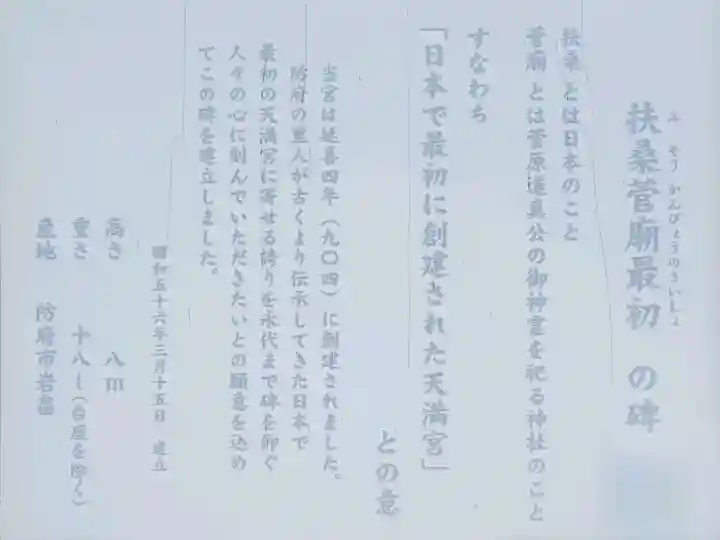 扶桑菅廟最初 の碑
ふ そう かんびょうのさいしょ
扶桑 とは日本のこと
菅廟 とは菅原道真公の御神霊を祀る神社のこと
すなわち
「日本で最初に創建された天満宮」
との意
当宮は延喜四年(九〇四)に創建されました。
防府の里人が古くより伝承してきた日本で
最初の天満宮に寄せる誇りを永代まで碑を仰ぐ
人々の心に刻んでいただきたいとの願意を込め
てこの碑を建立しました。
昭和五十六年三月十五日 建立
高さ 八m
重さ 十八t(台座を除く)
産地 防府市岩畠